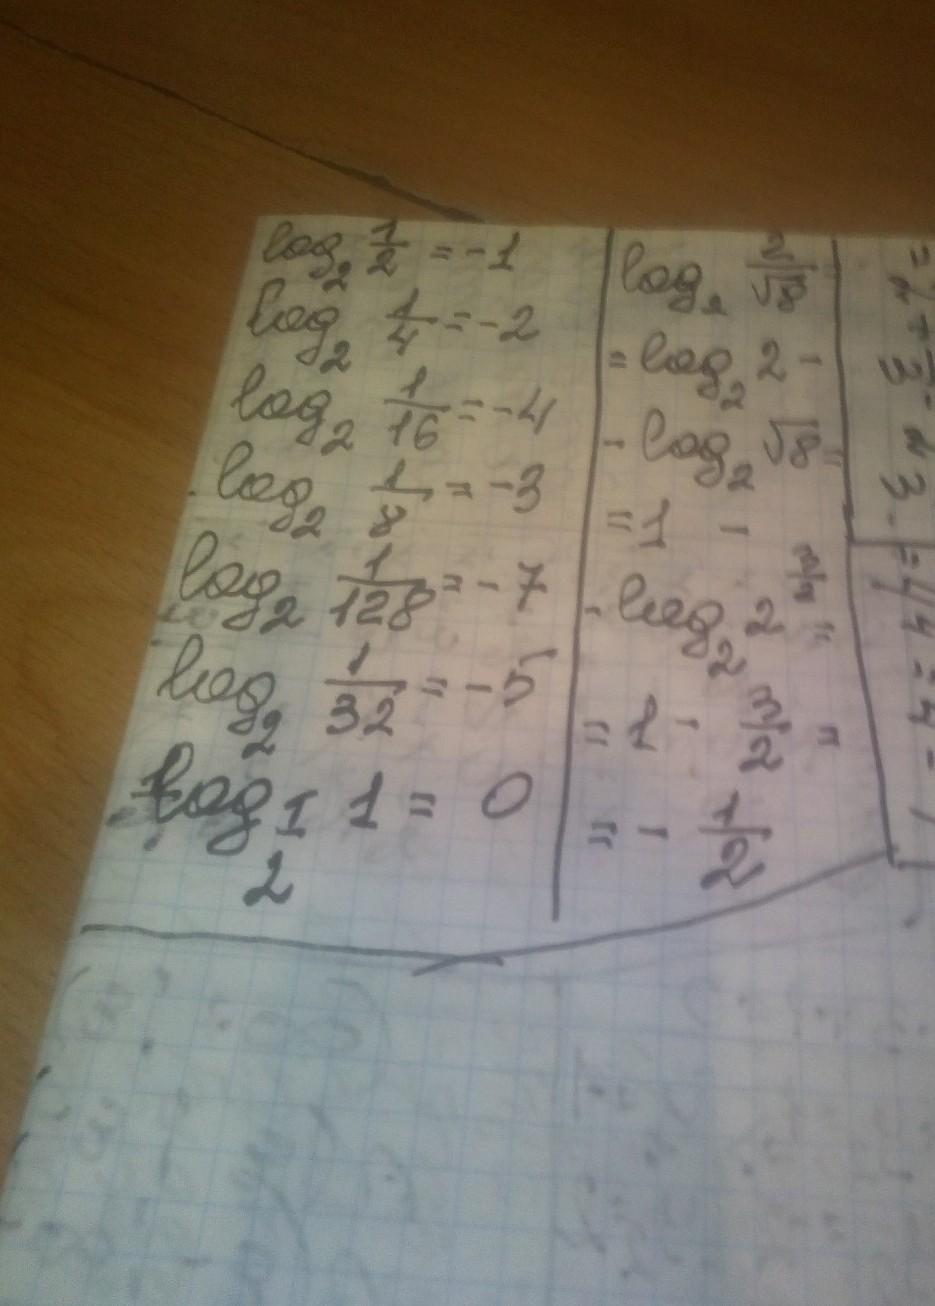 log₂ 1/2 = -1
log₂ 1/4 = -2
log₂ 1/16 = -4
log₂ 1/8 = -3
log₂ 1/128 = -7
log₂ 1/32 = -5
log_(1/2) 1 = 0
log₂ 2/√8 =
= log₂ 2 -
- log₂ √8 =
= 1 -
- log₂ 2^(3/2) =
= 1 - 3/2 =
= - 1/2